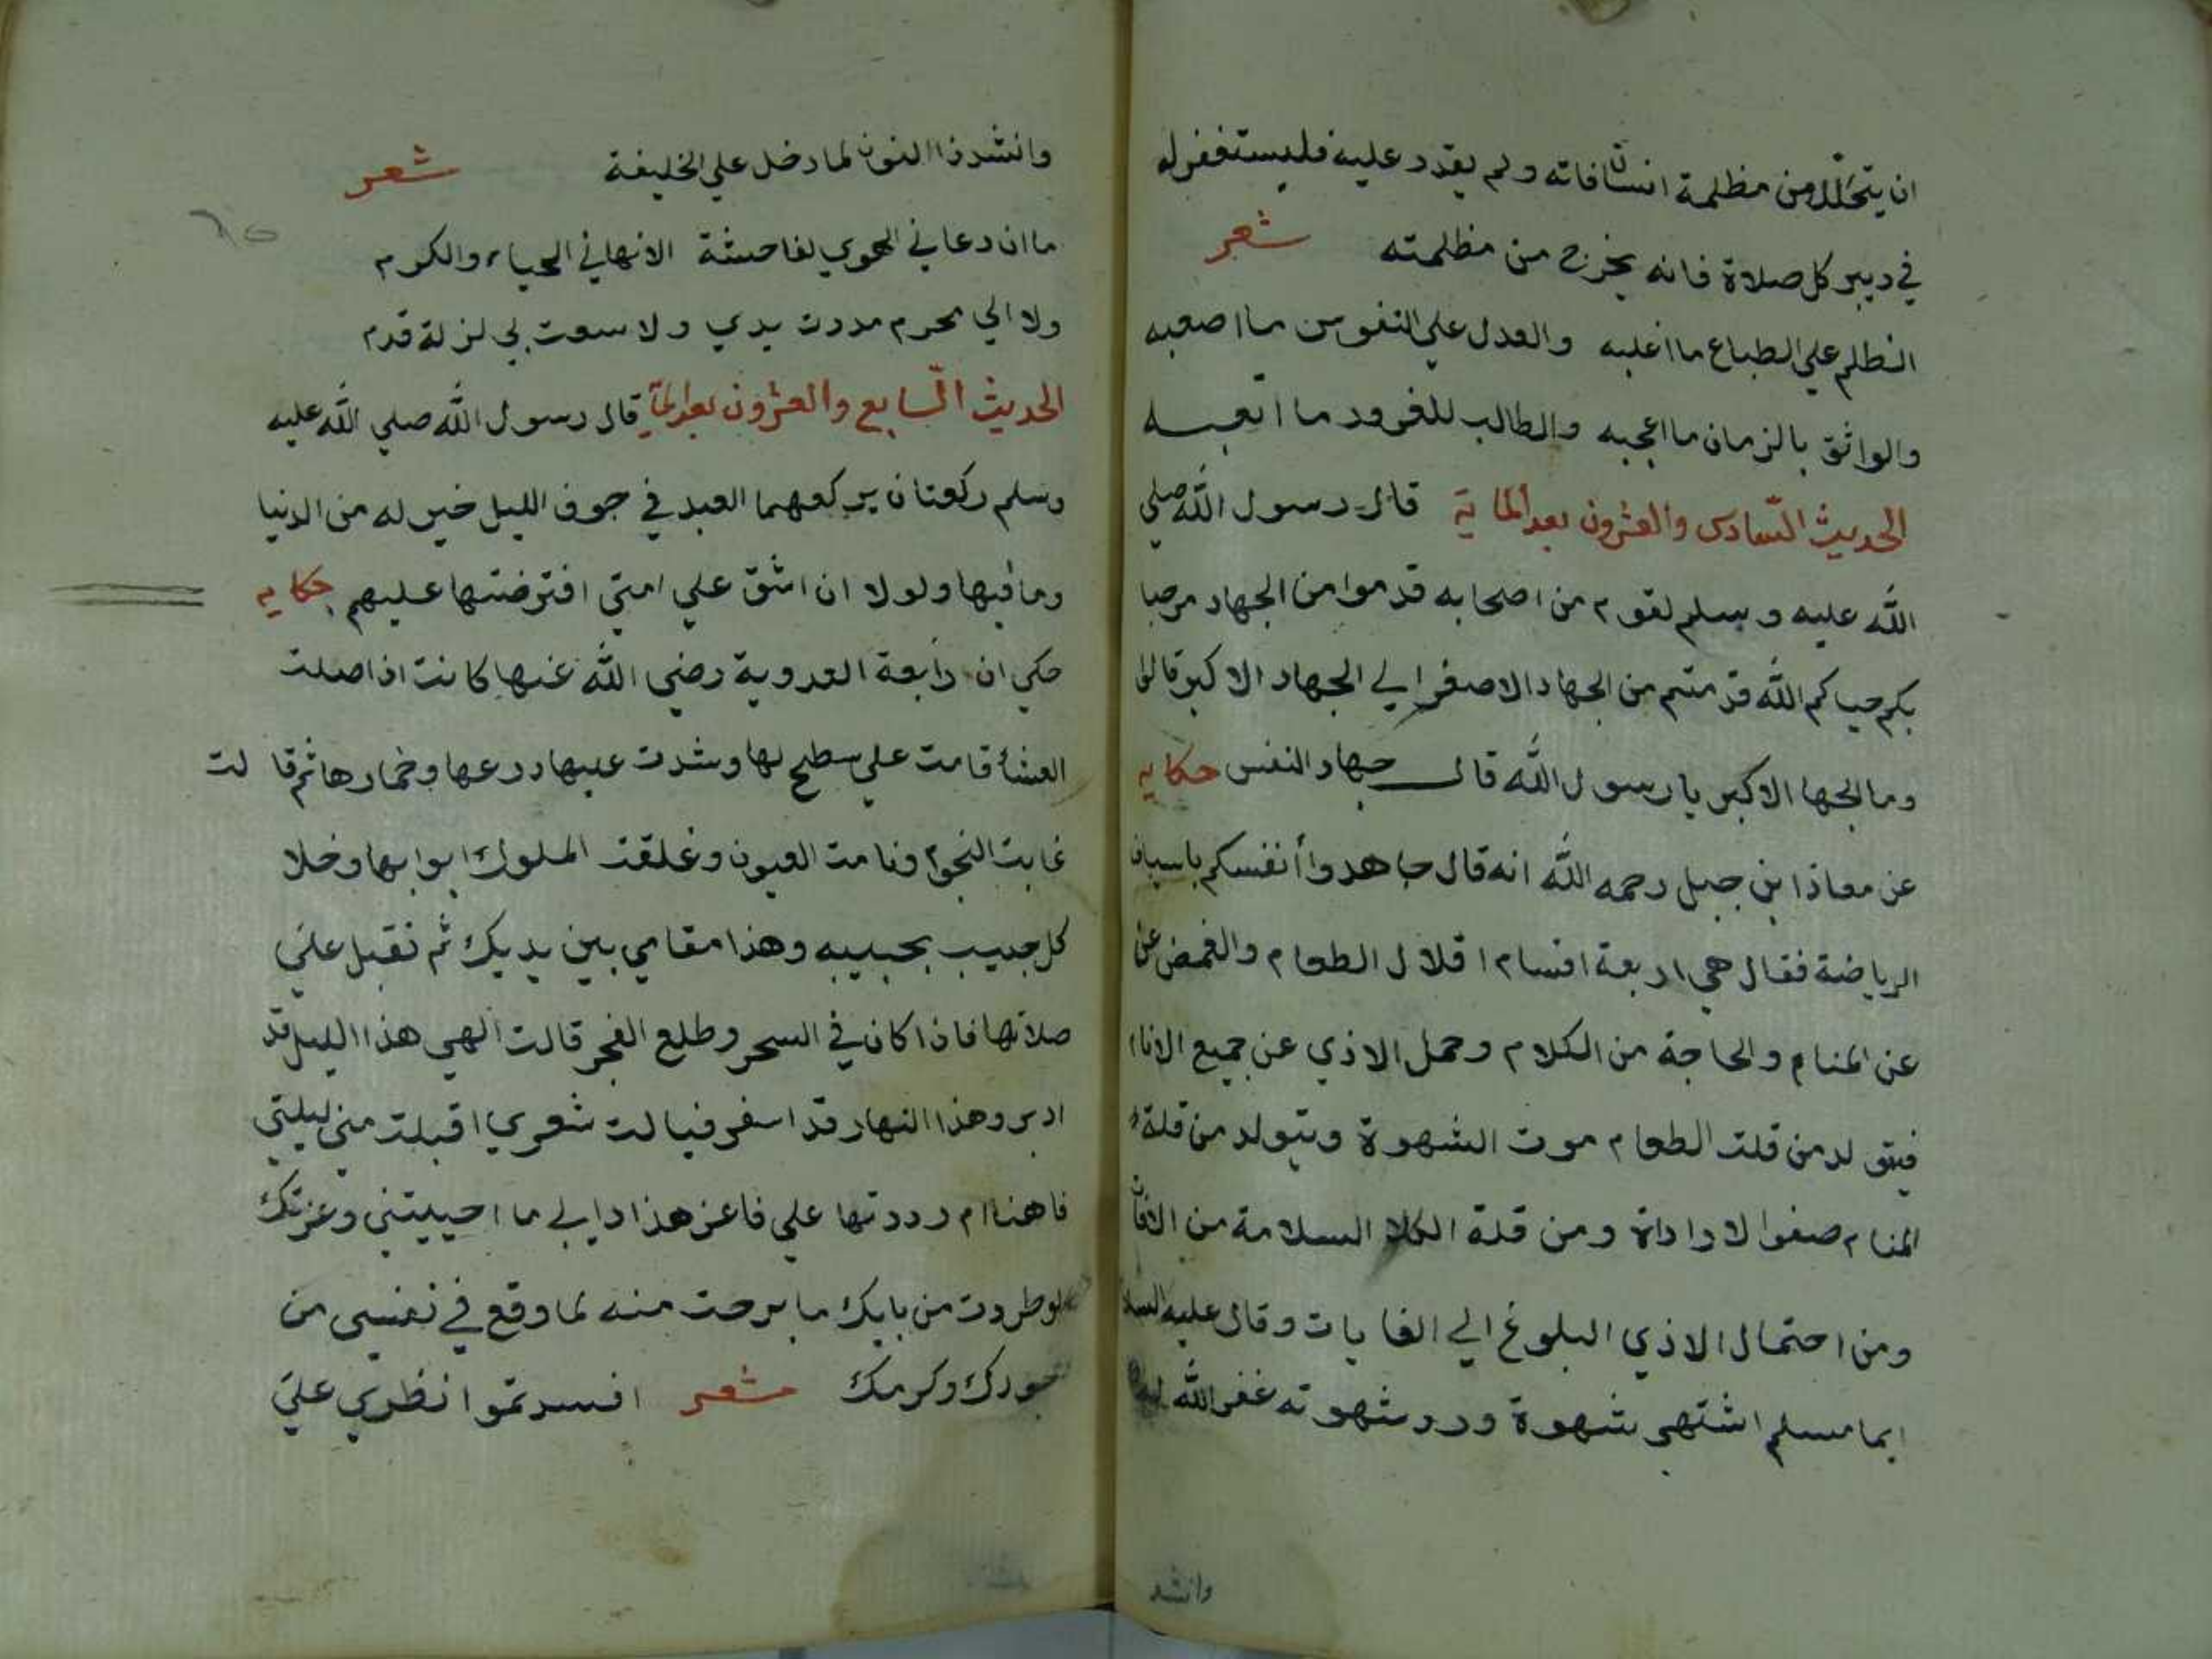 ان يتحلل من مظلمة انسان فاته ولم يقدر عليه فليستغفر له
في ديبر كل صلاة فانه يخرج من مظلمته شعر
الظلم علي الطباع ما اغلبه والعدل علي النفوس ما اصعبه
والواثق بالزمان ما اعجبه والطالب للغرور ما اتعبه
الحديث السادس والعشرون بعد الماية قال رسول الله صلي
الله عليه وسلم لقوم من اصحابه قدموا من الجهاد مرحبا
بكم حياكم الله قدمتم من الجهاد الاصغر الي الجهاد الاكبر قالوا
وما لجها الاكبر يا رسول الله قال جهاد النفس حكايه
عن معاذ ابن جبل رحمه الله انه قال جاهدوا أنفسكم باسياف
الرياضة فقال هي اربعة اقسام اقلال الطعام والغمض عن
عن المنام والحاجة من الكلام وحمل الاذي عن جميع الانا
فيتولد من قلت الطعام موت الشهوة ويتولد من قلة
المنام صفوا لاراداة ومن قلة الكلا السلامة من الافات
ومن احتمال الاذي البلوغ الي الغايات وقال عليه السلا
ايما مسلم اشتهي شهوة ورد شهوته غفر الله له
وانشد
وانشد ذا النون لما دخل علي الخليفة شعر
ما ان دعاني الهوي لفاحشة الانهاني الحياء والكرم
ولا الي محرم مددت يدي ولا سعت بي لزلة قدم
الحديث السابع والعشرون بعد الماية قال رسول الله صلي الله عليه
وسلم ركعتان يركعهما العبد في جوف الليل خير له من الدنيا
وما فيها ولولا ان اشق علي امتي افترضتها عليهم حكايه
حكي ان رابعة العدوية رضي الله عنها كانت اذا صلت
العشاء قامت علي سطح لها وشدت عليها درعها وخمارها ثم قالت
غابت النجوم ونامت العيون وغلقت الملوك ابوابها وخلا
كل حبيب بحبيبه وهذا مقامي بين يديك ثم تقبل علي
صلاتها فاذا كان في السحر وطلع الفجر قالت الهي هذا الليل قد
ادبر وهذا النهار قد اسفر فيا لت شعري اقبلت مني ليلتي
فاهنا ام رددتها علي فاعز هذا دابي ما احييتني وعزتك
لو طردت من بابك ما برحت منه لما وقع في نفسي من
جودك وكرمك شعر افسدتموا نظري علي